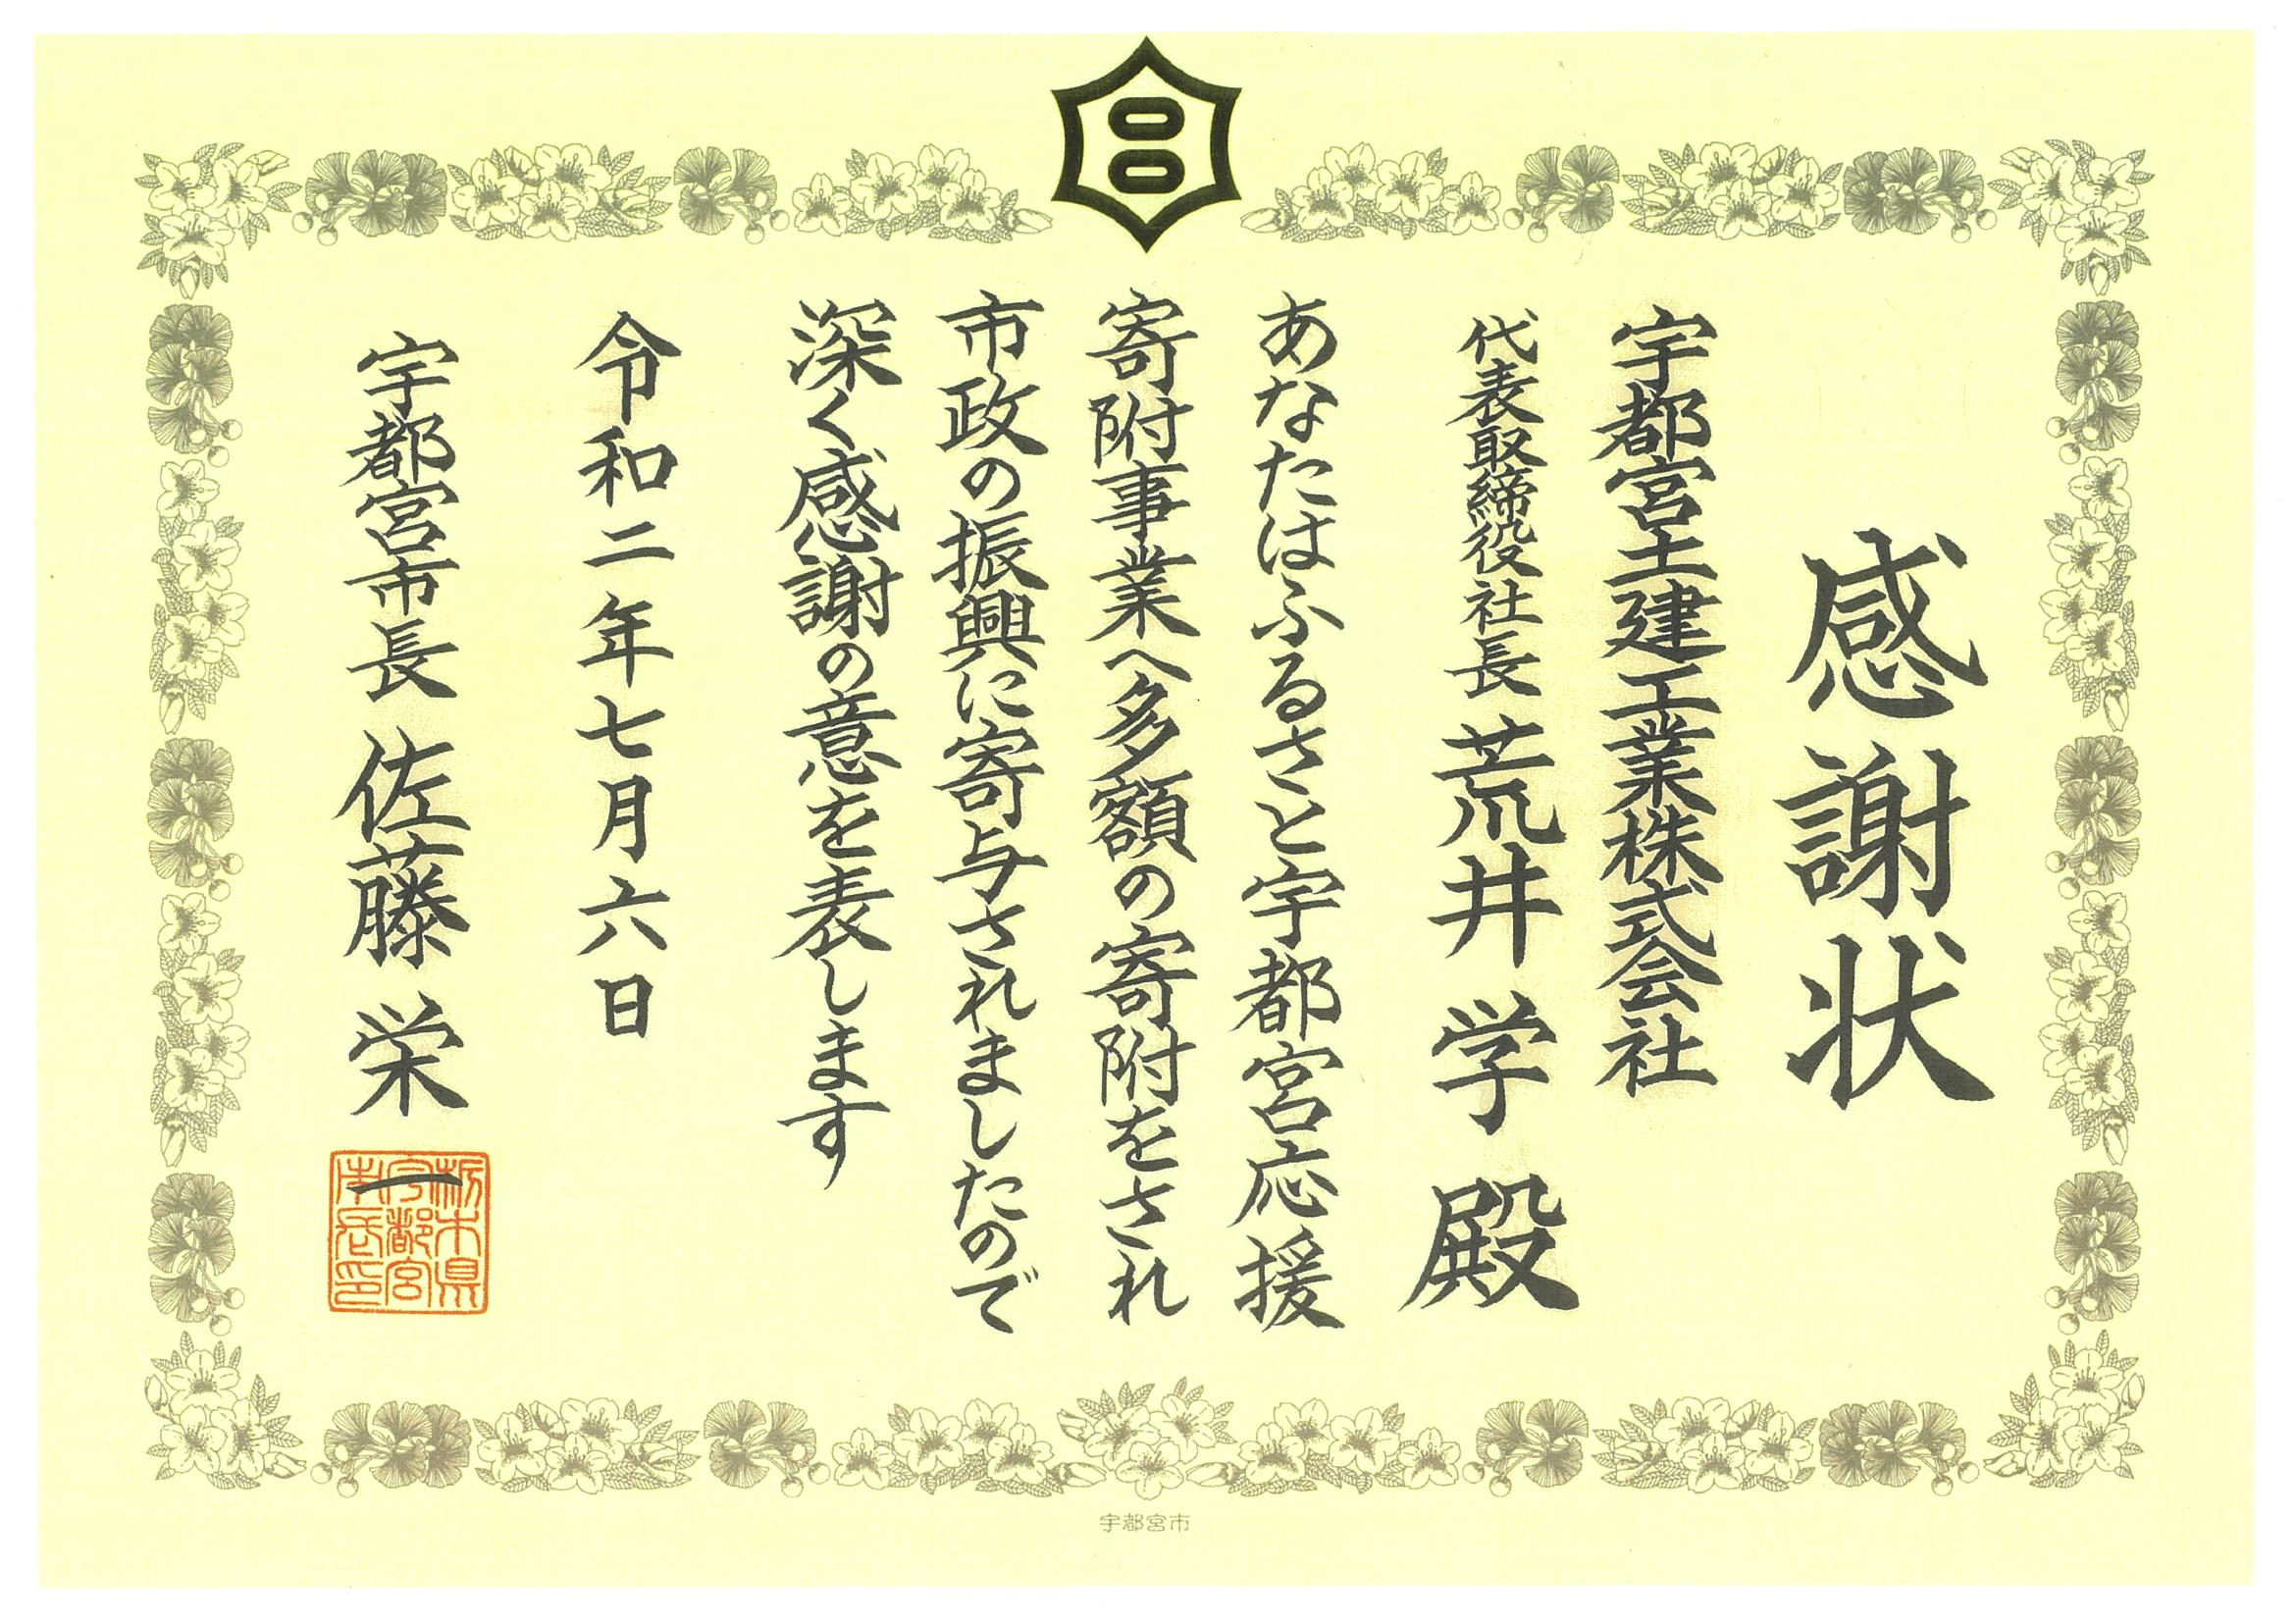 感謝状
宇都宮土建工業株式会社
代表取締役社長 荒井 学 殿
あなたはふるさと宇都宮応援
寄附事業へ多額の寄附をされ
市政の振興に寄与されましたので
深く感謝の意を表します
令和二年七月六日
宇都宮市長 佐藤 栄一
栃木県
宇都宮
市長印
宇都宮市